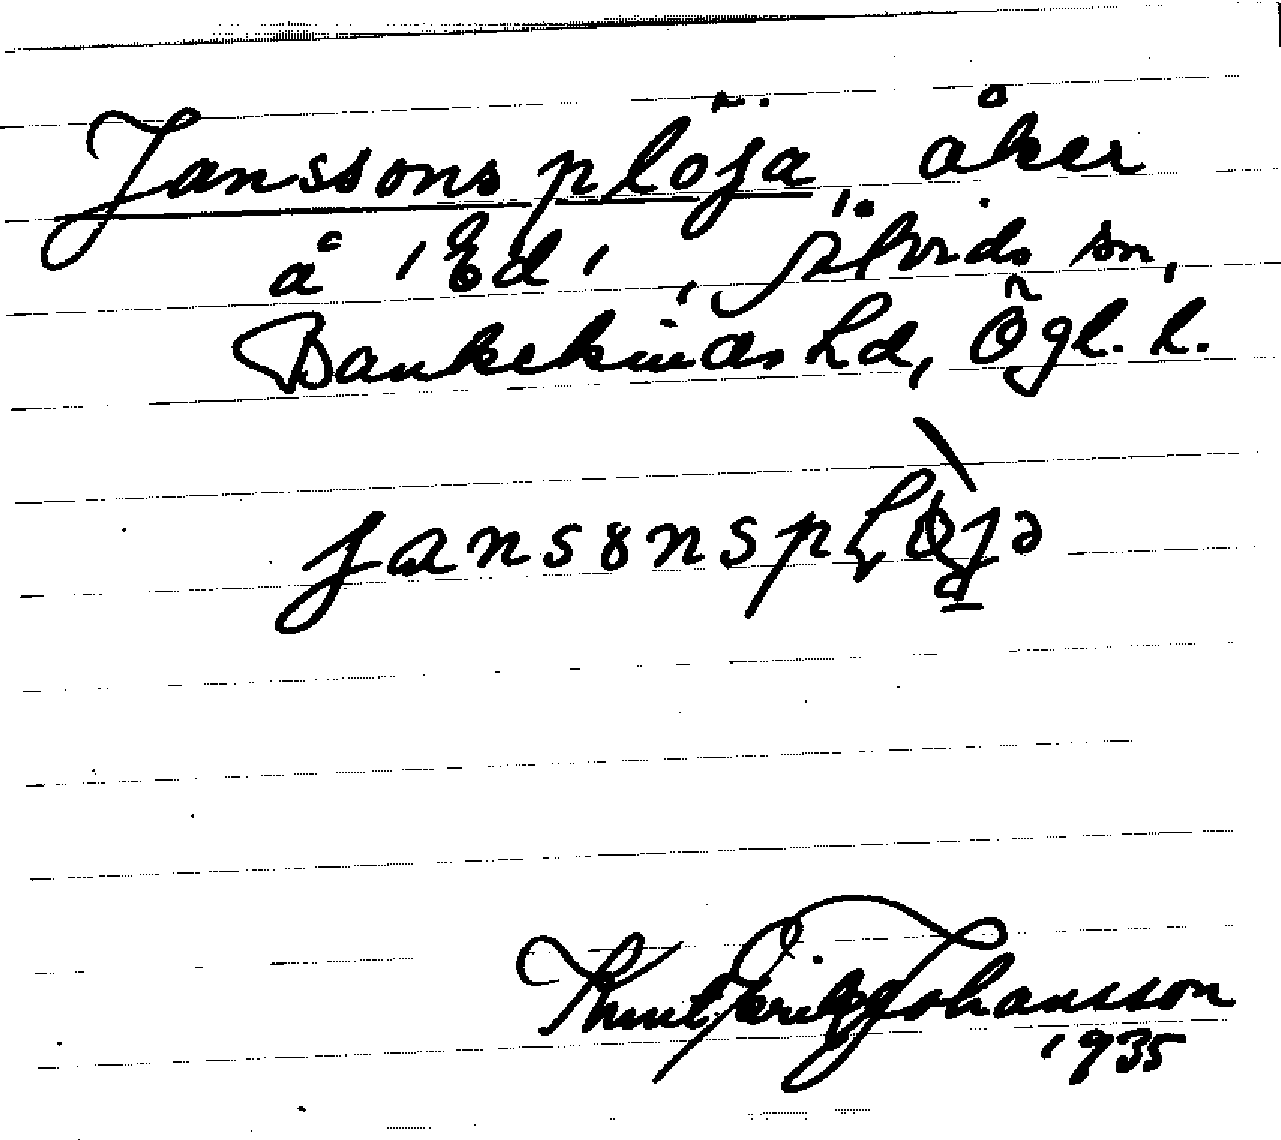 Janssons plöja, åker
å 'Ed', Älvids sn,
Bankekinds hd, Ögl. l.
jansonsplöja
Knut Erik Johansson
1935